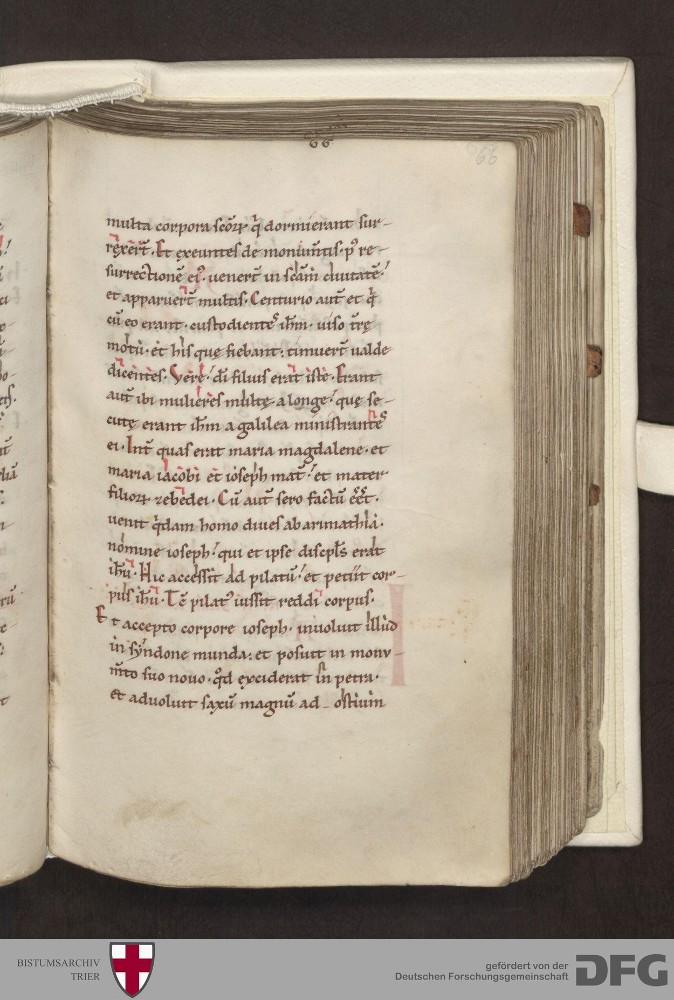 66
66
multa corpora scōꝝ q̄ dormierant sur-
rẹxer̄t. Et ẹxeuntes de monium̄tis. pꝰ re-
surrectionē eiꝰ. vener̄t in scām civitatē.
et apparuer̄t multis. Centurio aut̄ et q̄
cū eo erant. custodientes ihm̄. viso t̄rę
motu. et his quę fiebant. timuer̄t valde
dicentes. Vere. dī filius erat iste. Erant
aut̄ ibi mulieres multę a longe. quę se-
cutę erant ihm̄ a galilea ministrantes
ei. Int̄ quas erat maria magdalene. et
maria iacobi et ioseph mat̄. et mater
filioꝝ zebedei. Cū aut̄ sero factū eēt.
venit q̄dam homo dives ab arimathia.
nomine ioseph. qui et ipse discipl̄s erat
ihū. Hic accessit ad pilatū. et petiit cor-
pus ihū. Tc̄ pilatꝰ iussit reddi corpus.
Et accepto corpore ioseph. involvit illud
in syndone munda. et posuit in monu-
m̄to suo novo. qd̄ exciderat in petra.
Et advolvit saxū magnū ad ostium
BISTUMSARCHIV
TRIER
gefördert von der
Deutschen Forschungsgemeinschaft
DFG